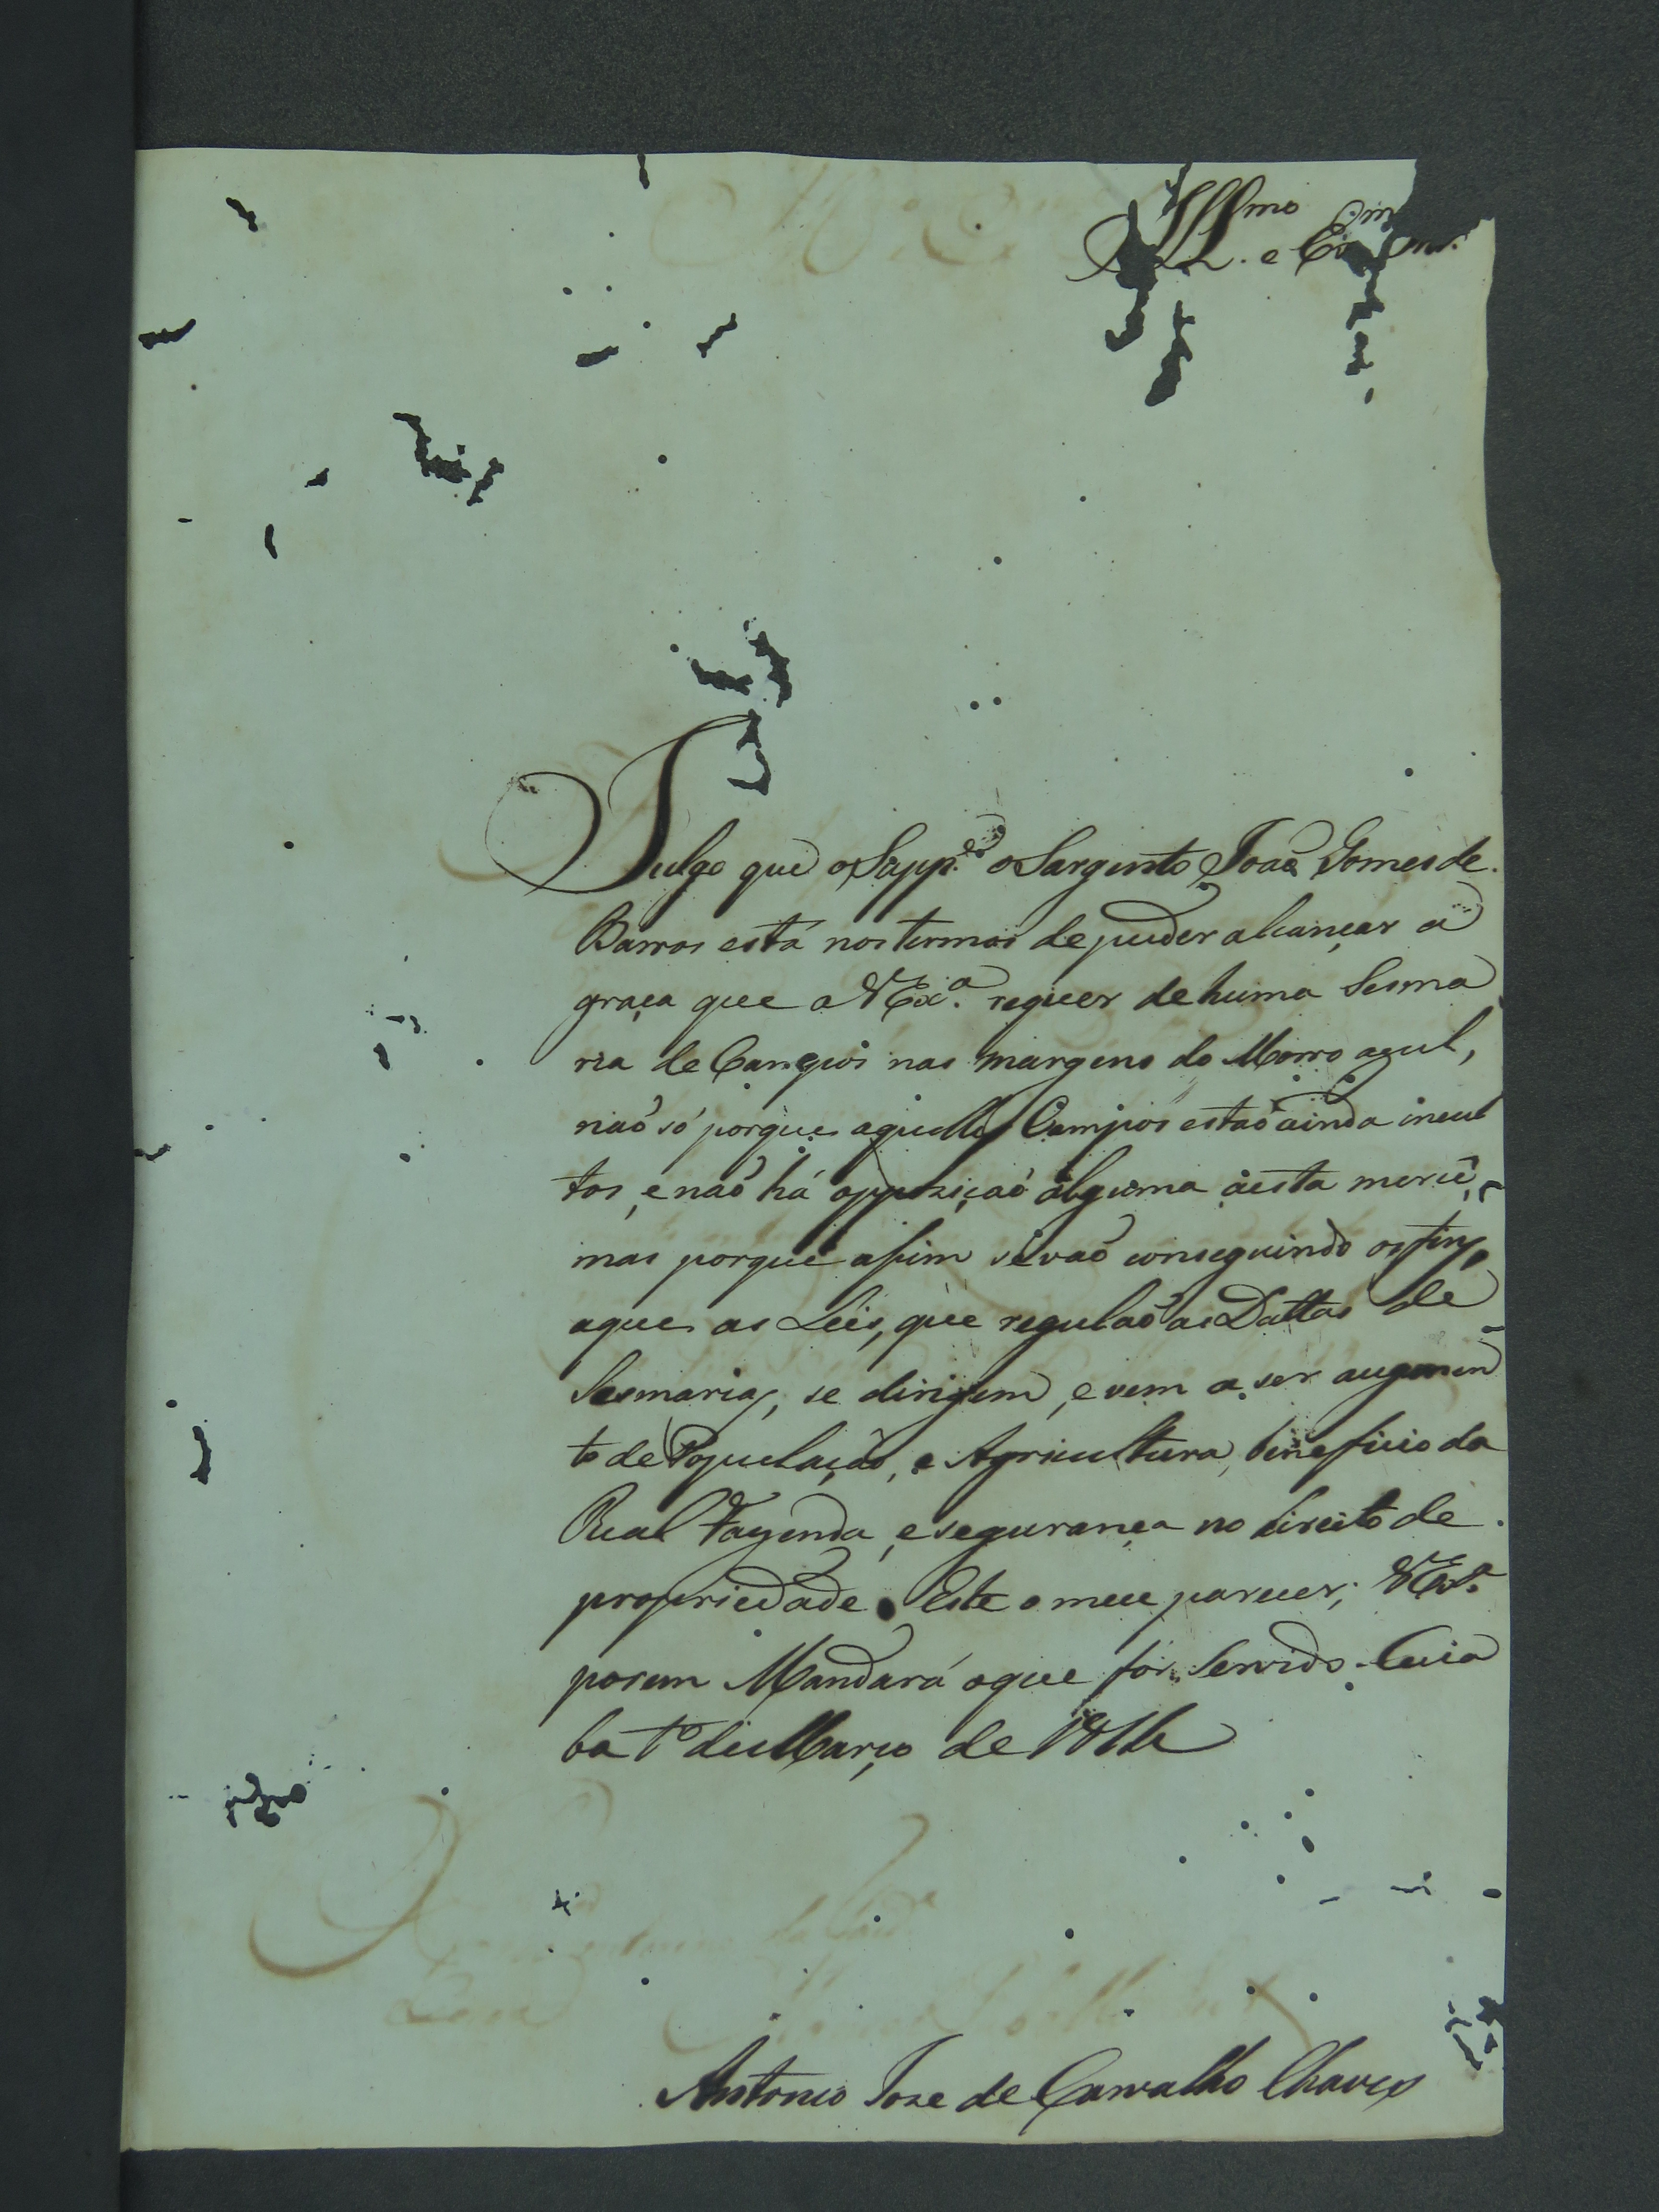 Ill.mo e Ex.mo Snr.
Julgo que o Supp.e o Sargento Joaõ Gomes de
Barros está nos termos de puder alcançar a
graça que a V Ex.a requer de huma Sesma
ria de Campos nas margens do Morro azul,
naõ só porque aquelles Campos estaõ ainda incul
tos, e naõ há oppoziçaõ alguma a esta mercê,
mas porque assim se vaõ conseguindo os fins,
a que as Leis, que regulaõ as Dattas de
Sesmarias, se dirigem, e vem a ser augmen
to de Populaçaõ, e Agricultura, beneficio da
Real Fazenda, e segurança no direito de
propriedade. Este o meu parecer; V Ex.a
porem Mandará o que for Servido. Cuia
ba 1o de Março de 1816
Antonio Jose de Carvalho Chaves